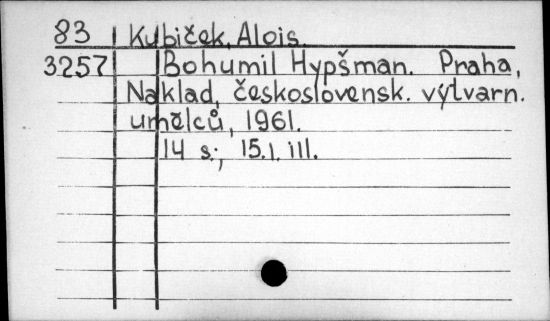 83 Kubiček, Alois.
3257 Bohumil Hypšman. Praha,
Naklad, československ. výtvarn.
umělců, 1961.
14 s.; 15.1. ill.